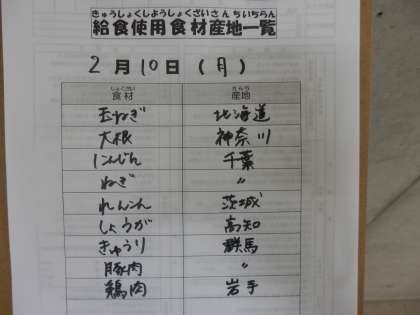 きゅうしょくしようしょくざいさんちいちらん
給食使用食材産地一覧
2月10日(月)
しょくざい さんち
食材 産地
玉ねぎ 北海道
大根 神奈川
にんじん 千葉
ねぎ 〃
れんこん 茨城
しょうが 高知
きゅうり 群馬
豚肉 〃
鶏肉 岩手